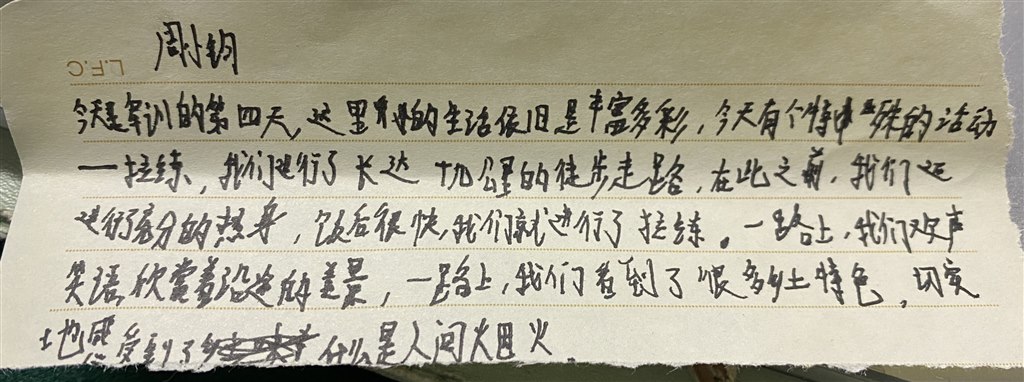 周小钧
L.F.C
今天是军训的第四天,这里的生活依旧是丰富多彩,今天有个特殊的活动
一拉练,我们进行了长达十九公里的徒步走路,在此之前,我们还
进行了充分的热身,饭后很快,我们就进行了拉练。一路上,我们欢声
笑语,欣赏着沿途的美景,一路上,我们看到了很多乡土特色,切实
地感受到了什么是人间烟火